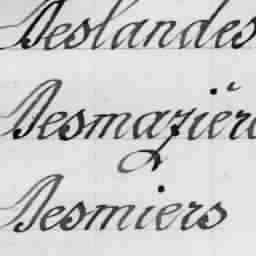 Deslandes
Desmazière
Desmiers